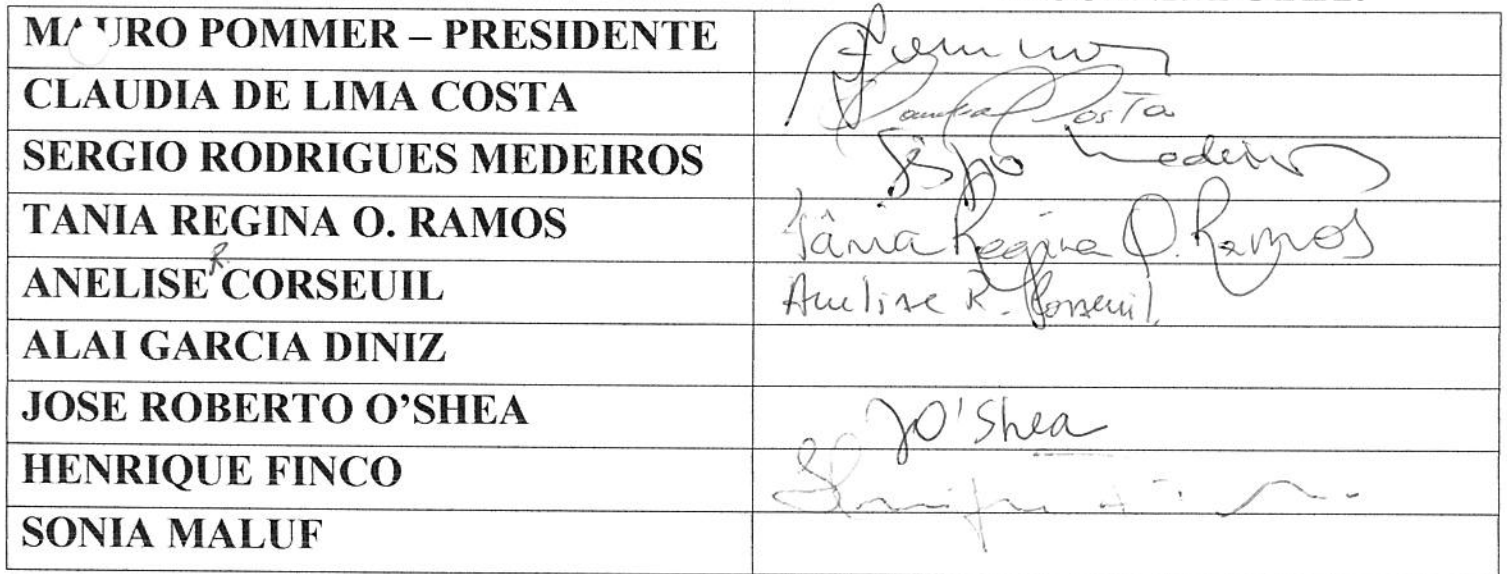 MAURO POMMER – PRESIDENTE
CLAUDIA DE LIMA COSTA Costa
SERGIO RODRIGUES MEDEIROS Sérgio Medeiros
TANIA REGINA O. RAMOS Tânia Regina O. Ramos
ANELISE R. CORSEUIL Anelise R. Corseuil.
ALAI GARCIA DINIZ
JOSE ROBERTO O'SHEA JO'Shea
HENRIQUE FINCO
SONIA MALUF